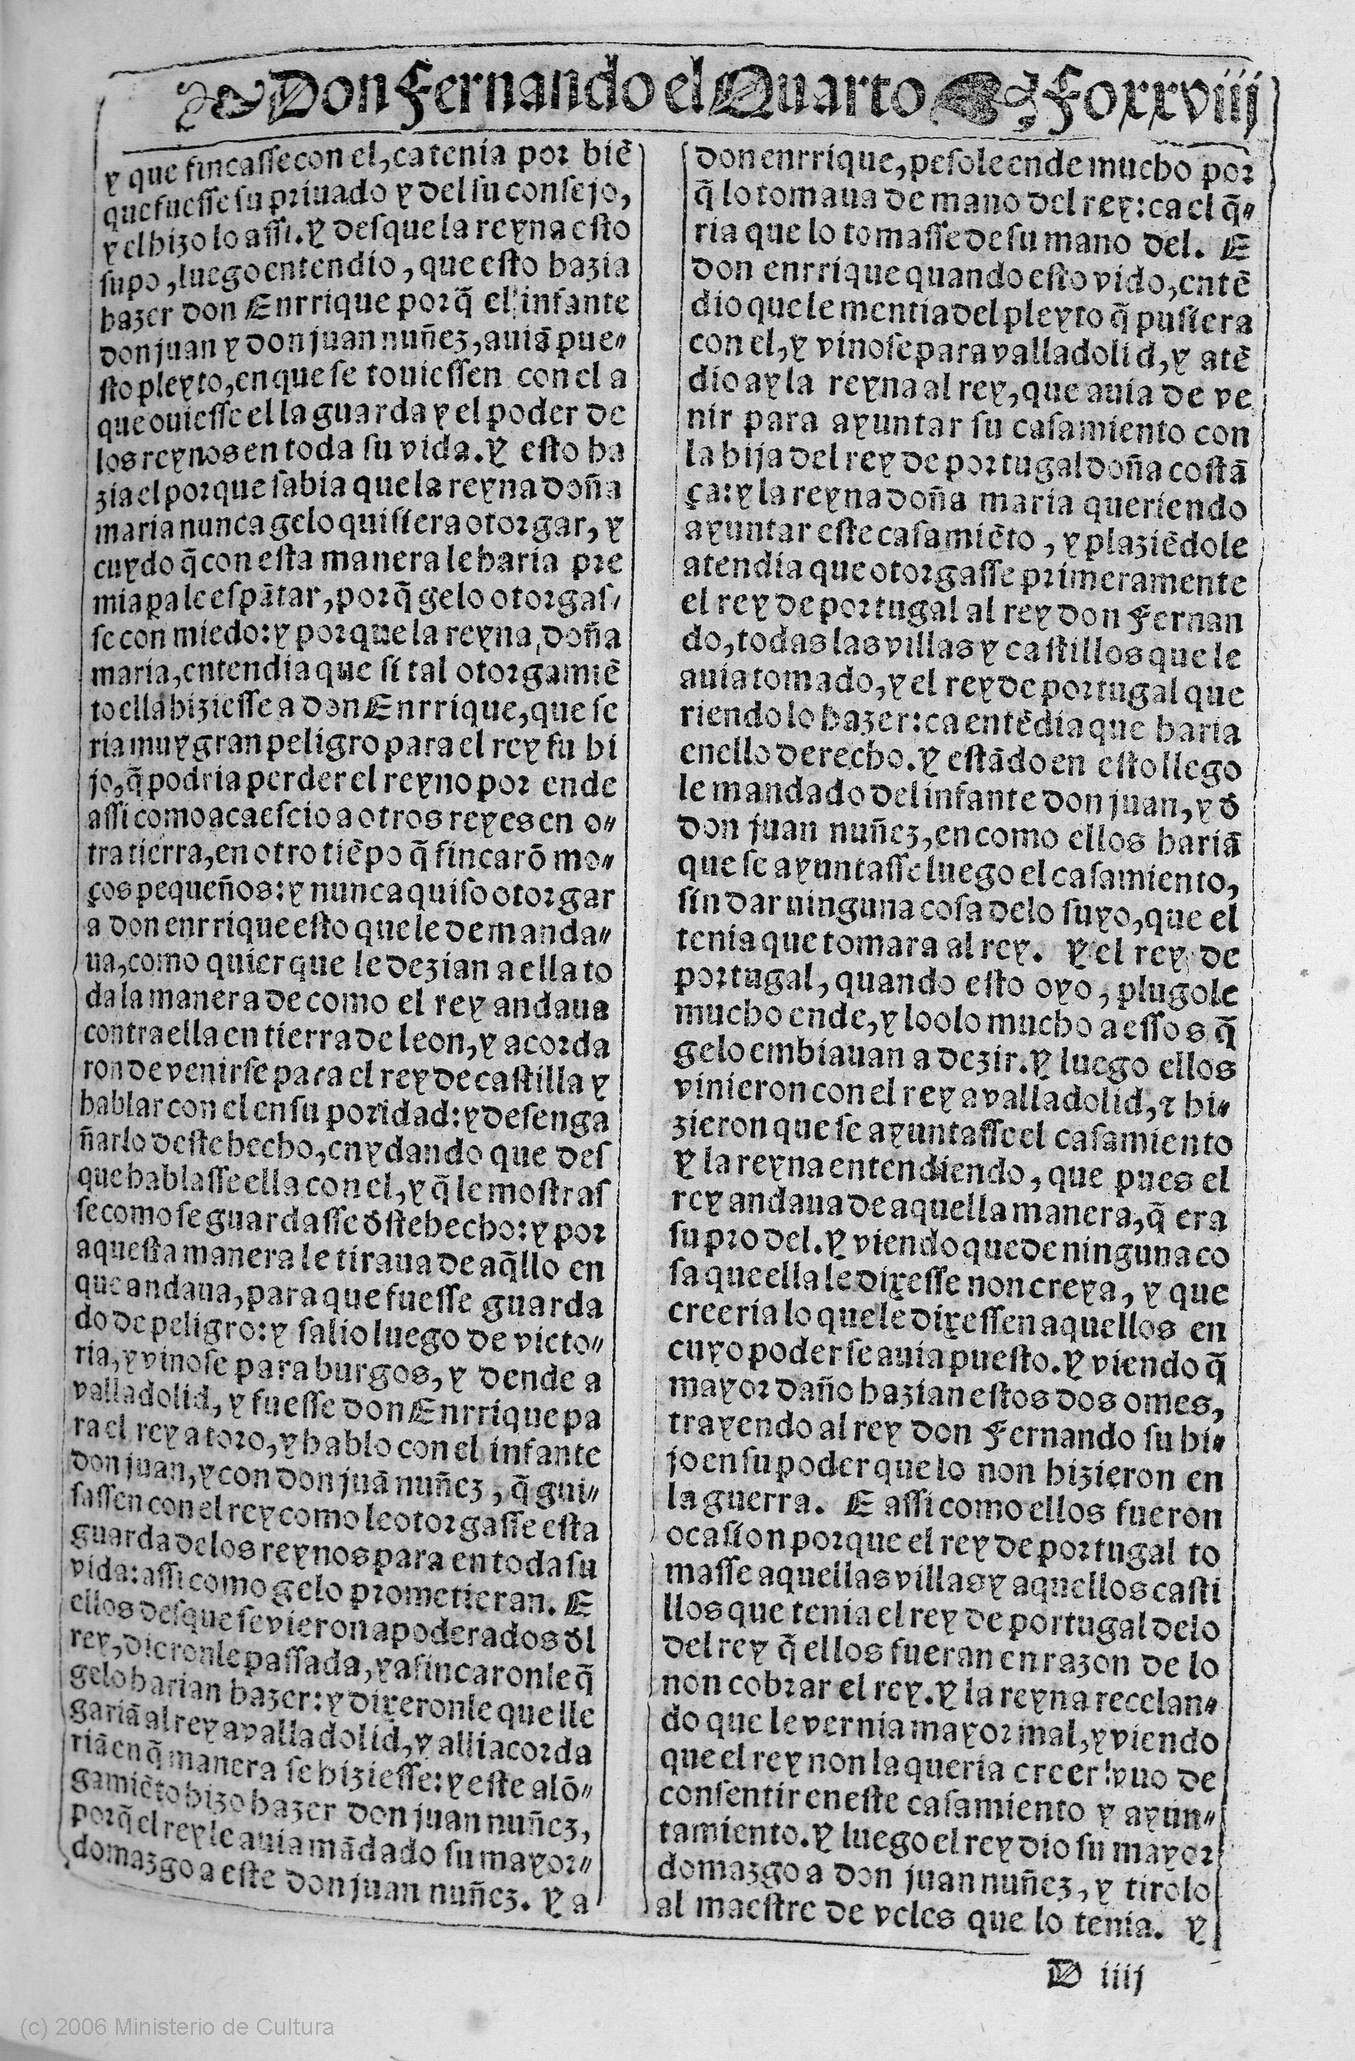 Don Fernando el Quarto Fo xxviij
y que fincasse con el, ca tenia por biē
que fuesse su priuado y del su consejo,
y el hizo lo assi. Y desque la reyna esto
supo, luego entendio, que esto hazia
hazer don Enrrique porq̃ el infante
don juan y don juan nuñez, auiā pue-
sto pleyto, en que se touiessen con el a
que ouiesse el la guarda y el poder de
los reynos en toda su vida. Y esto ha
zia el porque sabia que la reyna doña
maria nunca gelo quisiera otorgar, y
cuydo q̃ con esta manera le haria pre
mia pa le espātar, porq̃ gelo otorgas-
se con miedo: y porque la reyna doña
maria, entendia que si tal otorgamiē
to ella hiziesse a don Enrrique, que se
ria muy gran peligro para el rey su hi
jo, q̃ podria perder el reyno por ende
assi como acaescio a otros reyes en o-
tra tierra, en otro tiēpo q̃ fincarō mo-
ços pequeños: y nunca quiso otorgar
a don enrrique esto que le demanda-
ua, como quier que le dezian a ella to
da la manera de como el rey andaua
contra ella en tierra de leon, y acorda
ron de venirse para el rey de castilla y
hablar con el en su poridad: y desenga
ñarlo deste hecho, cnydando que des
que hablasse ella con el, y q̃ le mostras
se como se guardasse d̄ste hecho: y por
aquesta manera le tiraua de aq̃llo en
que andaua, para que fuesse guarda
do de peligro: y salio luego de victo-
ria, y vinose para burgos, y dende a
valladolid, y fuesse don Enrrique pa
ra el rey a toro, y hablo con el infante
don juan, y con don juā nuñez, q̃ gui-
sassen con el rey como le otorgasse esta
guarda de los reynos para en toda su
vida: assi como gelo prometieran. E
ellos desque se vieron apoderados d̄l
rey, dieronle passada, y afincaronle q̃
gelo harian hazer: y dixeronle que lle
gariā al rey a valladolid, y alli acorda
riā en q̃ manera se hiziesse: y este alō-
gamiēto hizo hazer don juan nuñez,
porq̃ el rey le auia mādado su mayor-
domazgo a este don juan nuñez. Y a
don enrrique, pesole ende mucho por
q̃ lo tomaua de mano del rey: ca el q̃-
ria que lo tomasse de su mano del. E
don enrrique quando esto vido, entē
dio que le mentia del pleyto q̃ pusiera
con el, y vinose para valladolid, y atē
dio ay la reyna al rey, que auia de ve
nir para ayuntar su casamiento con
la hija del rey de portugal doña costā
ça: y la reyna doña maria queriendo
ayuntar este casamiēto, y plaziēdole
atendia que otorgasse primeramente
el rey de portugal al rey don Fernan
do, todas las villas y castillos que le
auia tomado, y el rey de portugal que
riendo lo hazer: ca entēdia que haria
enello derecho. Y estādo en esto llego
le mandado del infante don juan, y d̄
don juan nuñez, en como ellos hariā
que se ayuntasse luego el casamiento,
sin dar ninguna cosa delo suyo, que el
tenia que tomara al rey. Y el rey de
portugal, quando esto oyo, plugole
mucho ende, y loolo mucho a essos q̃
gelo embiauan a dezir. Y luego ellos
vinieron con el rey a valladolid, ⁊ hi-
zieron que se ayuntasse el casamiento
Y la reyna entendiendo, que pues el
rey andaua de aquella manera, q̃ era
su pro del. Y viendo que de ninguna co
sa que ella le dixesse non creya, y que
creeria lo que le dixessen aquellos en
cuyo poder se auia puesto. Y viendo q̃
mayor daño hazian estos dos omes,
trayendo al rey don Fernando su hi-
jo en su poder que lo non hizieron en
la guerra. E assi como ellos fueron
ocasion porque el rey de portugal to
masse aquellas villas y aquellos casti
llos que tenia el rey de portugal delo
del rey q̃ ellos fueran en razon de lo
non cobrar el rey. Y la reyna recelan-
do que le vernia mayor mal, y viendo
que el rey non la queria creer vuo de
consentir en este casamiento y ayun-
tamiento. Y luego el rey dio su mayor
domazgo a don juan nuñez, y tirolo
al maestre de vcles que lo tenia. Y
D iiij
(c) 2006 Ministerio de Cultura